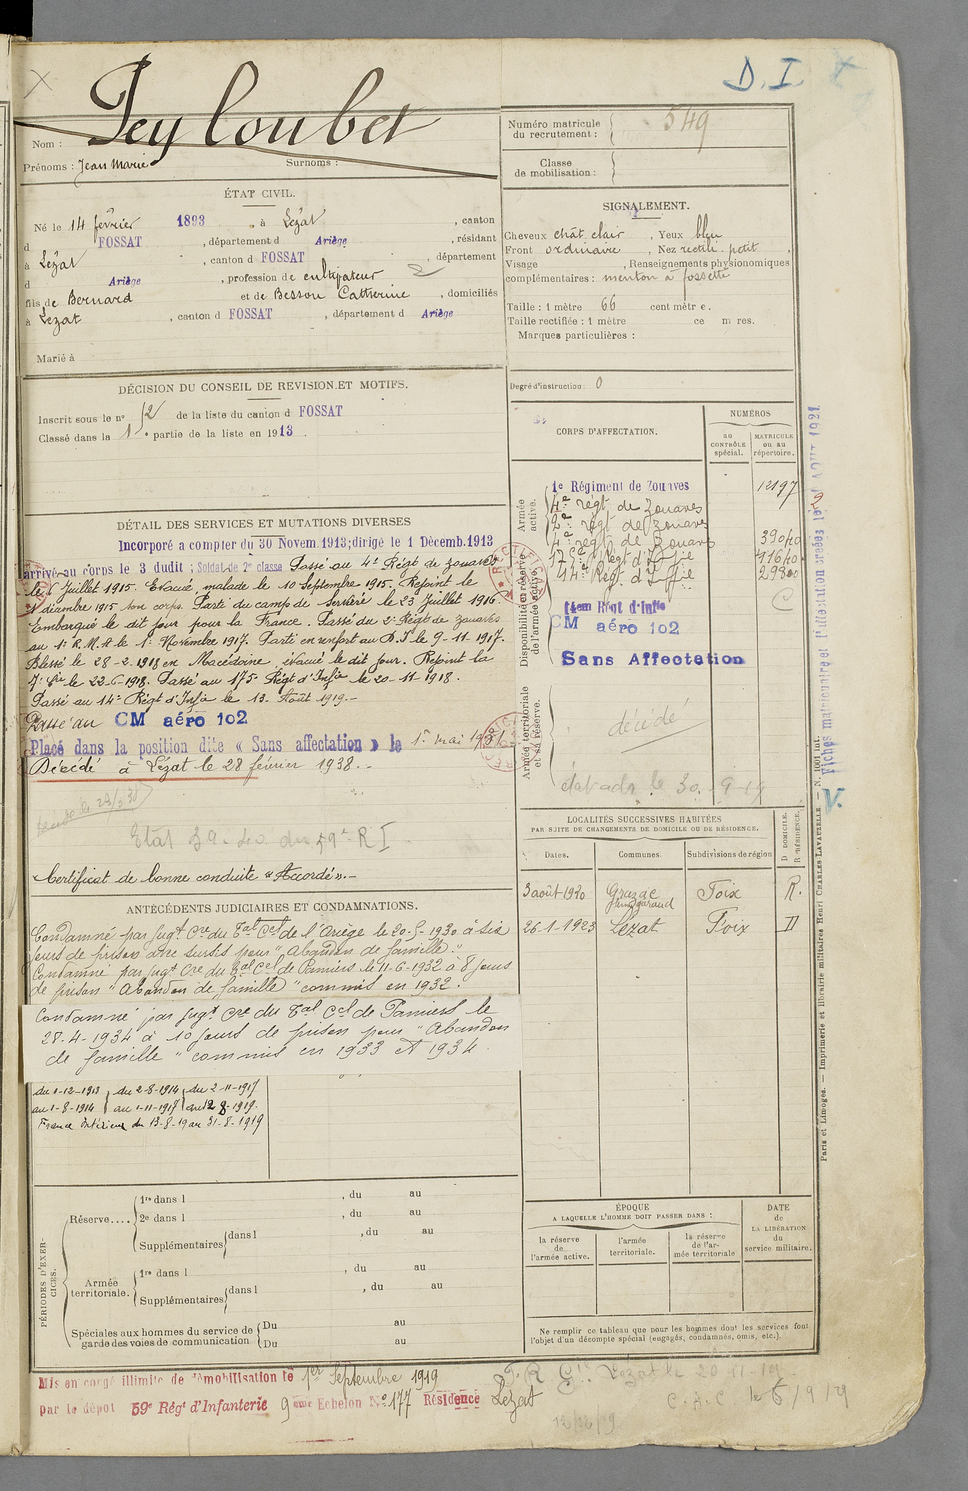 D. I.
Nom : Peyloubet
Prénoms : Jean Marie Surnoms :
ÉTAT CIVIL.
Né le 14 février 1893, à Lézat, canton
d FOSSAT, département d Ariège, résidant
à Lézat, canton d FOSSAT, département
d Ariège, profession de cultivateur
fils de Bernard et de Besson Catherine, domiciliés
à Lezat, canton d FOSSAT, département d Ariège
Marié à
DÉCISION DU CONSEIL DE REVISION ET MOTIFS.
Inscrit sous le n° 52 de la liste du canton d FOSSAT
Classé dans la 1re partie de la liste en 1913.
DÉTAIL DES SERVICES ET MUTATIONS DIVERSES
Incorporé a compter du 30 Novem. 1913; dirigé le 1 Décemb. 1913
arrivé au corps le 3 dudit ; Soldat de 2e classe Passé au 4e Régt de zouaves
le 6 Juillet 1915. Evacué malade le 10 Septembre 1915. Rejoint le
1 décembre 1915 son corps. Parti du camp de Serviere le 23 Juillet 1916.
Embarqué le dit jour pour la France. Passé du 2e Régt de zouaves
au 1er R.M.A le 1er Novembre 1917. Parti en renfort au D.I le 9-11-1917.
Blessé le 28-2-1918 en Macédoine, évacué le dit jour. Rejoint la
7e Cie le 22-6-1918. Passé au 175e Régt d'Infie le 20-11-1918.
Passé au 14e Régt d'Infie le 13 Août 1919.-
Passé au CM aéro 102
Placé dans la position dite « Sans affectation » le 1er mai 193
Décédé à Lézat le 28 février 1938.-
Etat 39-40 du 59e R I
Certificat de bonne conduite "Accordé".-
ANTÉCÉDENTS JUDICIAIRES ET CONDAMNATIONS.
Condamné par Jugt Cre du Tal Cel de l'Ariège le 20-5-1930 à six
jours de prison avec sursis pour "Abandon de famille."
Condamné par Jugt Cre du Tal Cel de Pamiers le 11-6-1932 à 8 jours
de prison "Abandon de famille" commis en 1932.
Condamné par Jugt Cre du Tal Cel de Pamiers le
28-4-1934 à 10 jours de prison pour "Abandon
de famille" commis en 1933 et 1934.
du 1-12-1913 } du 2-8-1914 } du 2-11-1917
au 1-8-1914 } au 1-11-1917 } au 12-8-1919
France Intérieur du 13-8-19 au 31-8-1919
PÉRIODES D'EXERCICES.
Réserve....
1re dans l , du au
2e dans l , du au
Supplémentaires dans l , du au
Armée territoriale.
1re dans l , du au
Supplémentaires dans l , du au
Spéciales aux hommes du service de garde des voies de communication
Du au
Du au
Mis en congé illimité de démobilisation le 1er Septembre 1919
par le dépot 59e Régt d'Infanterie 9eme Echelon N° 177 Résidence Lezat
Numéro matricule du recrutement : 549
Classe de mobilisation :
SIGNALEMENT.
Cheveux chât. clair, Yeux bleu
Front ordinaire, Nez rectil. petit,
Visage , Renseignements physionomiques
complémentaires : menton à fossette
Taille : 1 mètre 66 centimètre.
Taille rectifiée : 1 mètre ce m res.
Marques particulières :
Degré d'instruction : 0
CORPS D'AFFECTATION.
NUMÉROS
AU CONTRÔLE spécial.
MATRICULE ou au répertoire.
Armée active.
1e Régiment de Zouaves 12197
4e régt de Zouaves
2e régt de zouaves
4e régt de Zouaves 39040
175e Régt d'Infie 11640
14e Régt d'Infie
Disponibilité et réserve de l'armée active.
14em Régt d'Infie
CM aéro 102
Sans Affectation
Armée territoriale et sa réserve.
décédé
LOCALITÉS SUCCESSIVES HABITÉES
PAR SUITE DE CHANGEMENTS DE DOMICILE OU DE RÉSIDENCE.
Dates. Communes. Subdivisions de région D DOMICILE. R RÉSIDENCE.
3 août 1920 Grazac Foix R.
26-1-1923 Lézat Foix D
ÉPOQUE
A LAQUELLE L'HOMME DOIT PASSER DANS :
la réserve de l'armée active.
l'armée territoriale.
la réserve de l'armée territoriale
DATE de LA LIBÉRATION du service militaire.
Ne remplir ce tableau que pour les hommes dont les services font
l'objet d'un décompte spécial (engagés, condamnés, omis, etc.).
C.A.C le 6/9/19
N. 1001 int.
Paris et Limoges. — Imprimerie et librairie militaires Henri CHARLES-LAVAUZELLE.